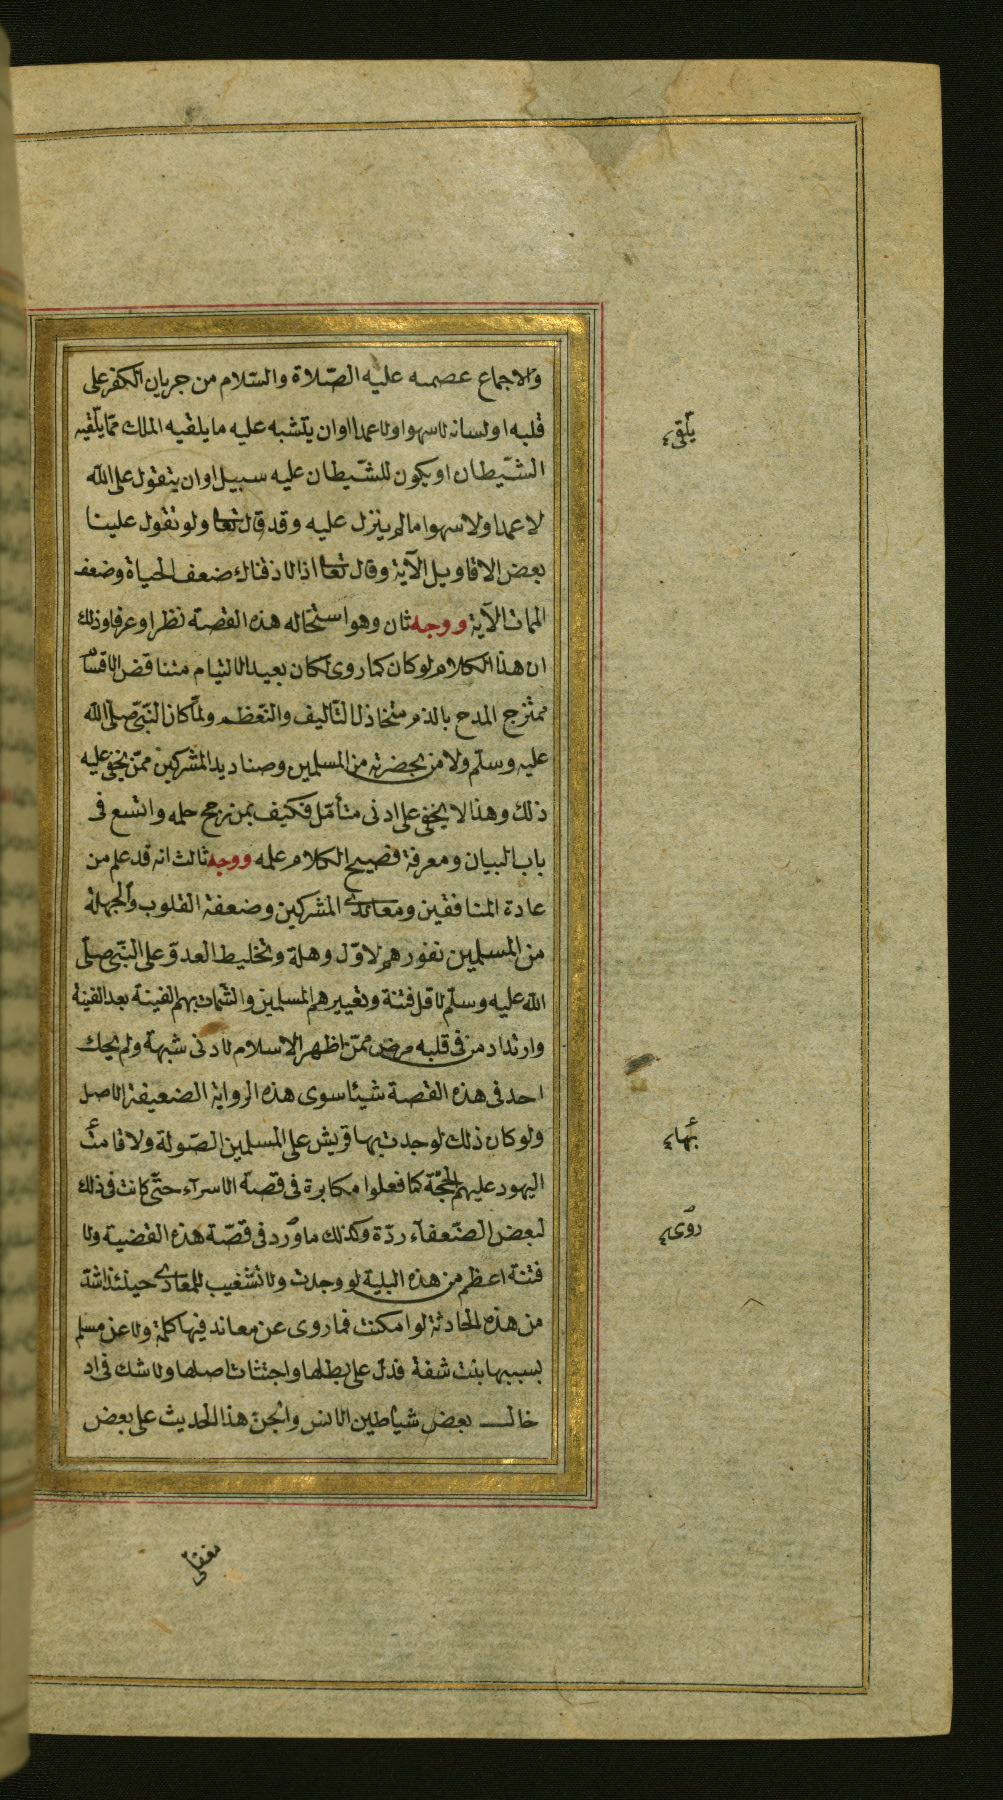 والاجماع عصمه عليه الصّلاة والسّلام من جريان الكفر على
قلبه او لسانه لا سهوا ولا عمدا او ان يتشبه عليه ما يلقيه الملك ممّا يلقيه
الشّيطان او يكون للشّيطان عليه سبيل او ان يتقول على الله
لا عمدا ولا سهوا ما لم ينزل عليه وقد قال تعا ولو تقول علينا
بعض الاقاويل الآية وقال تعا اذا لاذقناك ضعف الحياة وضعف
الممات الآية ووجه ثان وهو استحاله هذه القصة نظرا وعرفا وذلك
ان هذا الكلام لو كان كما روى لكان بعيد الالتيام متناقض الاقسام
ممتزج المدح بالذم متخاذل التاليف والنّظم ولمّا كان النّبيّ صلّى الله
عليه وسلّم ولا من بحضرته من المسلمين وصناديد المشركين ممّن يخفى عليه
ذلك وهذا لا يخفى على ادنى متأمّل فكيف بمن رجح حلمه واتسع فى
باب البيان ومعرفة فصيح الكلام علمه ووجه ثالث انه قد علم من
عادة المنافقين ومعاندى المشركين وضعفة القلوب والجهلة
من المسلمين نفورهم لاوّل وهلة وتخليط العدوّ على النّبى صلّى
الله عليه وسلّم لاقل فتنة وتعييرهم المسلمين والشّمات بهم الفينة بعد الفينة
وارتداد من فى قلبه مرض ممّن اظهر الاسلام لادنى شبهة ولم يحك
احد فى هذه القصة شيئا سوى هذه الرواية الضعيفة الاصل
ولو كان ذلك لوجدت بها قريش على المسلمين الصّولة ولاقامت
اليهود عليهم الحجّة كما فعلوا مكابرة فى قصة الاسرآء حتّى كانت فى ذلك
لبعض الضّعفآء ردّة وكذلك ما ورد فى قصّة هذه القضية ولا
فتنة اعظم من هذه البلية لو وجدت ولا تشغيب للمعادى حينئذ اشدّ
من هذه الحادثة لو امكنت فما روى عن معاند فيها كلمة ولا عن مسلم
بسببها بنت شفة فدل على بطلها واجتثات اصلها ولا شك فى اد
خال بعض شياطين الانس والجن هذا الحديث على بعض
يلّقى
بها
روى